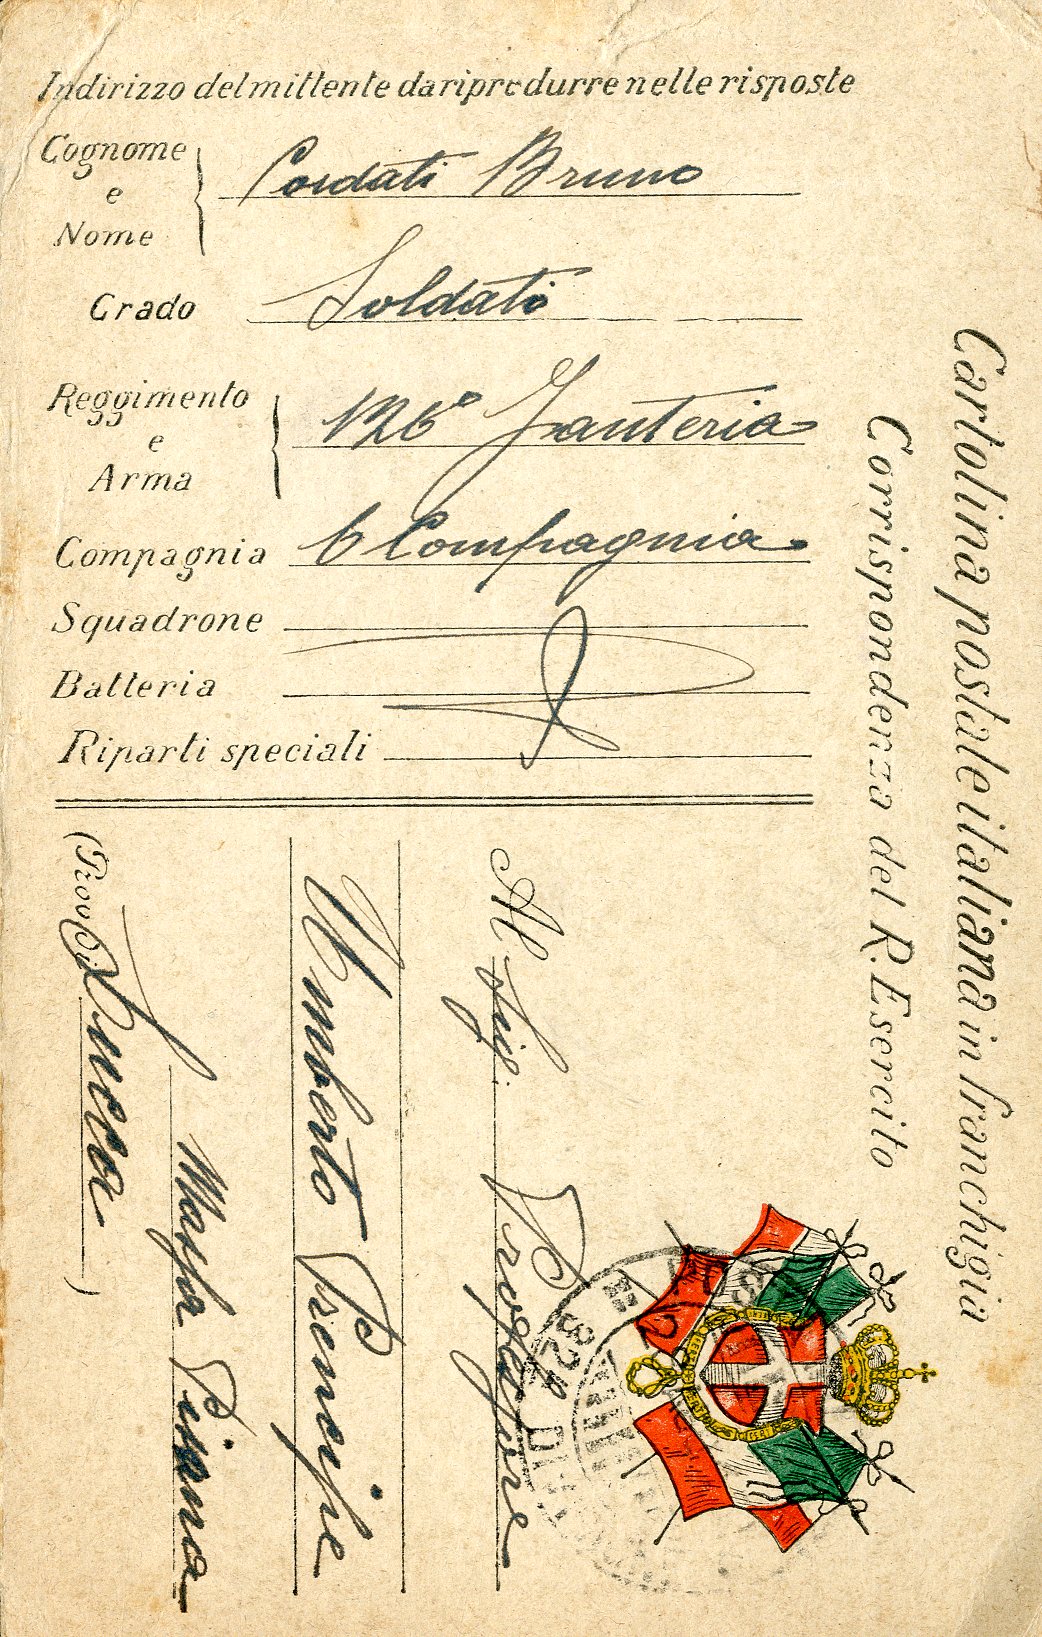 Indirizzo del mittente da riprodurre nelle risposte
Cognome e Nome
Cordati Bruno
Grado
Soldato
Reggimento e Arma
126° Fanteria
Compagnia
6 Compagnia
Squadrone
Batteria
Riparti speciali
Cartolina postale italiana in franchigia
Corrispondenza del R. Esercito
Al Sig.
Umberto Principe
Massa Pisana
(Prov. di Lucca)